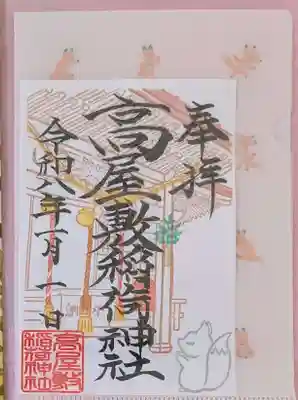 奉拝
高屋敷稲荷神社
令和八年一月一日
高屋敷
稲荷神社